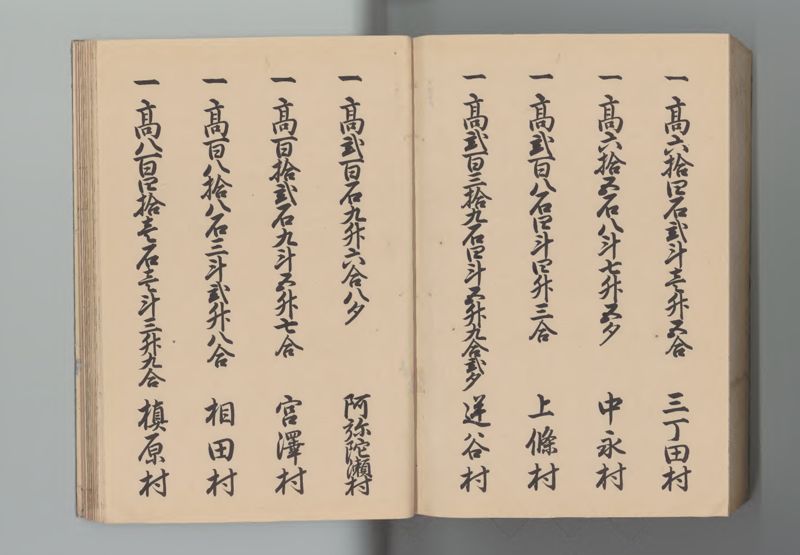 一 高六拾四石弐斗壱升五合 三丁田村
一 高六拾五石八斗七升五夕 中永村
一 高弐百八石四斗四升三合 上條村
一 高弐百三拾九石四斗五升九合弐夕 逆谷村
一 高弐百石九升六合八夕 阿弥陀瀬村
一 高百拾弐石九斗五升七合 宮澤村
一 高百八拾八石三斗弐升八合 相田村
一 高八百四拾壱石壱斗三升九合 槙原村